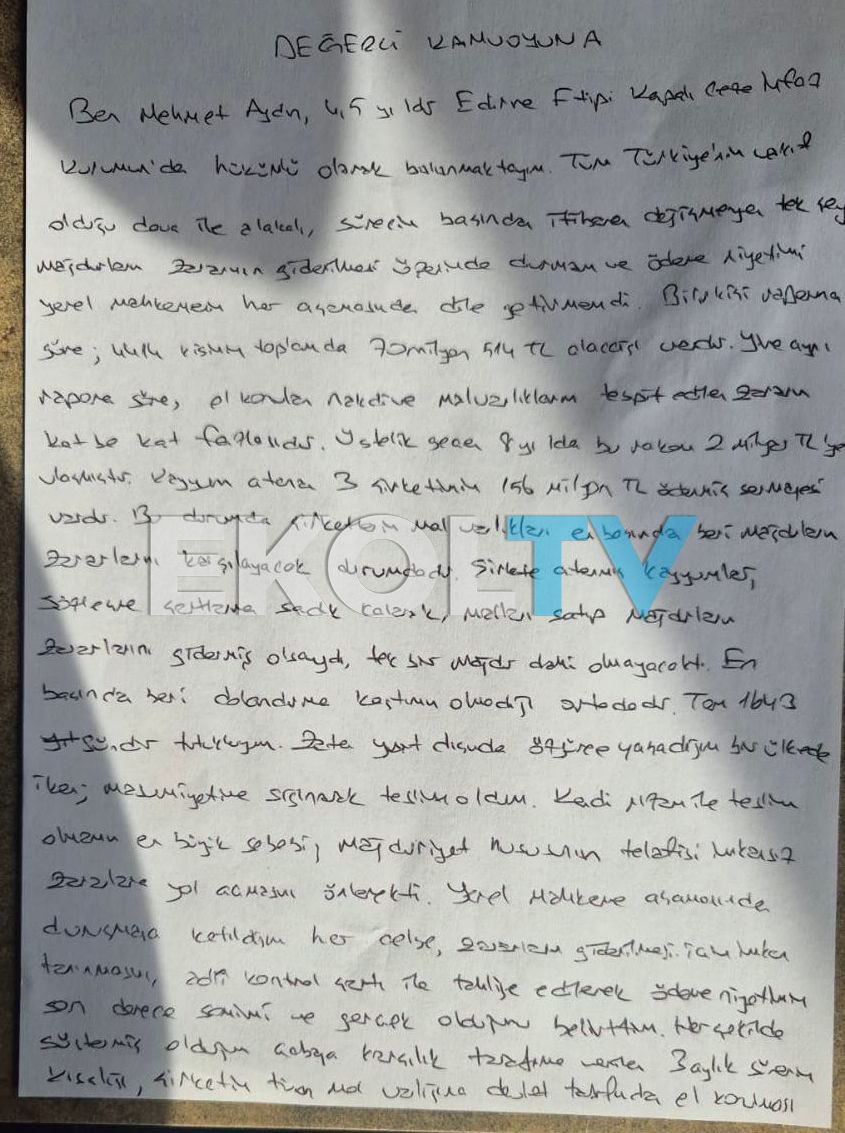 DEĞERLİ KAMUOYUNA
Ben Mehmet Aydın, 4,5 yıldır Edirne F tipi Kapalı Ceza İnfaz
Kurumun'da hükümlü olarak bulunmaktayım. Tüm Türkiye'nin vakıf
olduğu dava ile alakalı, sürecin başından itibaren değişmeyen tek şey
mağdurların zararının giderilmesi üzerinde durmam ve ödeme niyetimi
yerel mahkemenin her aşamasında dile getirmemdi. Bilirkişi raporuna
göre; kısım toplamda 70 milyon 514 TL alacağı vardır. Yine aynı
rapora göre, el konulan nakdi ve malvarlıklarım tespit edilen zararın
kat be kat fazlasıdır. Üstelik geçen 8 yılda bu rakam 2 milyar TL'ye
ulaşmıştır. Kayyum atanan 3 şirketimin 156 milyon TL ödenmiş sermayesi
vardır. Bu durumda şirketlerin mal varlıkları en başından beri mağdurların
zararlarını karşılayacak durumdadır. Şirkete atanmış kayyumlar,
sözleşme şartlarına sadık kalarak, malları satıp mağdurların
zararlarını gidermiş olsaydı, tek bir mağdur dahi olmayacaktı. En
başından beri dolandırma kastımın olmadığı ortadadır. Tam 1643
gündür tutukluyum. Zaten yurt dışında özgürce yaşadığım bir ülkede
iken; masumiyetime sığınarak teslim oldum. Kendi rızam ile teslim
olmamın en büyük sebebi, mağduriyet hususunun telafisi imkansız
zararlara yol açmasını önlemekti. Yerel mahkeme aşamasında
duruşmaya katıldığım her celse, zararların giderilmesi için imkan
tanınmasını, adli kontrol şartı ile tahliye edilerek ödeme niyetimin
son derece samimi ve gerçek olduğunu belirttim. Her şekilde
göstermiş olduğum çabaya karşılık tarafıma verilen 3 aylık sürenin
kısalığı, şirketin tüm mal varlığına devlet tarafından el konması
EKOLTV